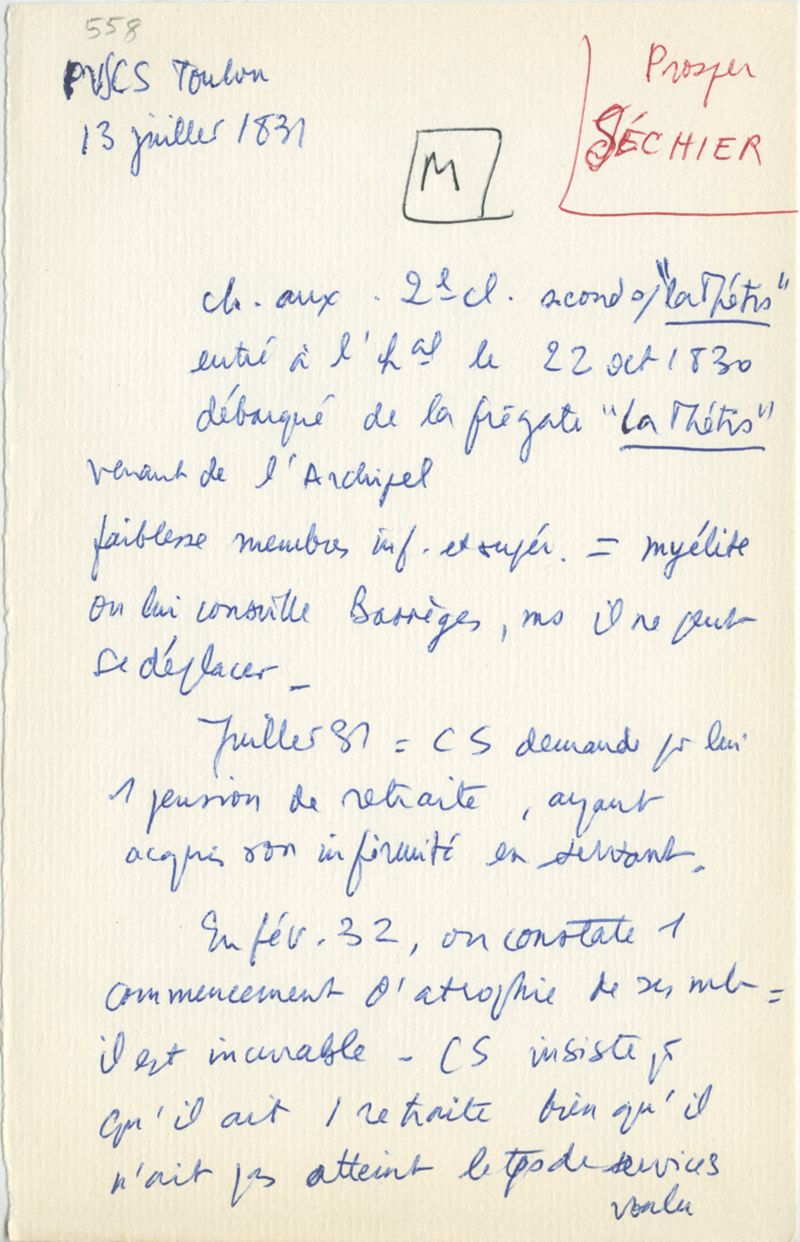 558
PVSCS Toulon
13 juillet 1831
Prosper
SÉCHIER
M
ch. aux. 2e cl. second s/"la Thétis"
entré à l'hal le 22 oct 1830
débarqué de la frégate "la Thétis"
venant de l'Archipel
faiblesse membres inf. et supér. = myélite
on lui conseille Barrèges, ms il ne peut
se déplacer –
Juillet 31 = CS demande pr lui
1 pension de retraite, ayant
acquis son infirmité en servant.
En fév. 32, on constate 1
commencement d'atrophie de ses mb =
il est incurable – CS insiste pr
qu'il ait 1 retraite bien qu'il
n'ait pas atteint le tps de services
voulu